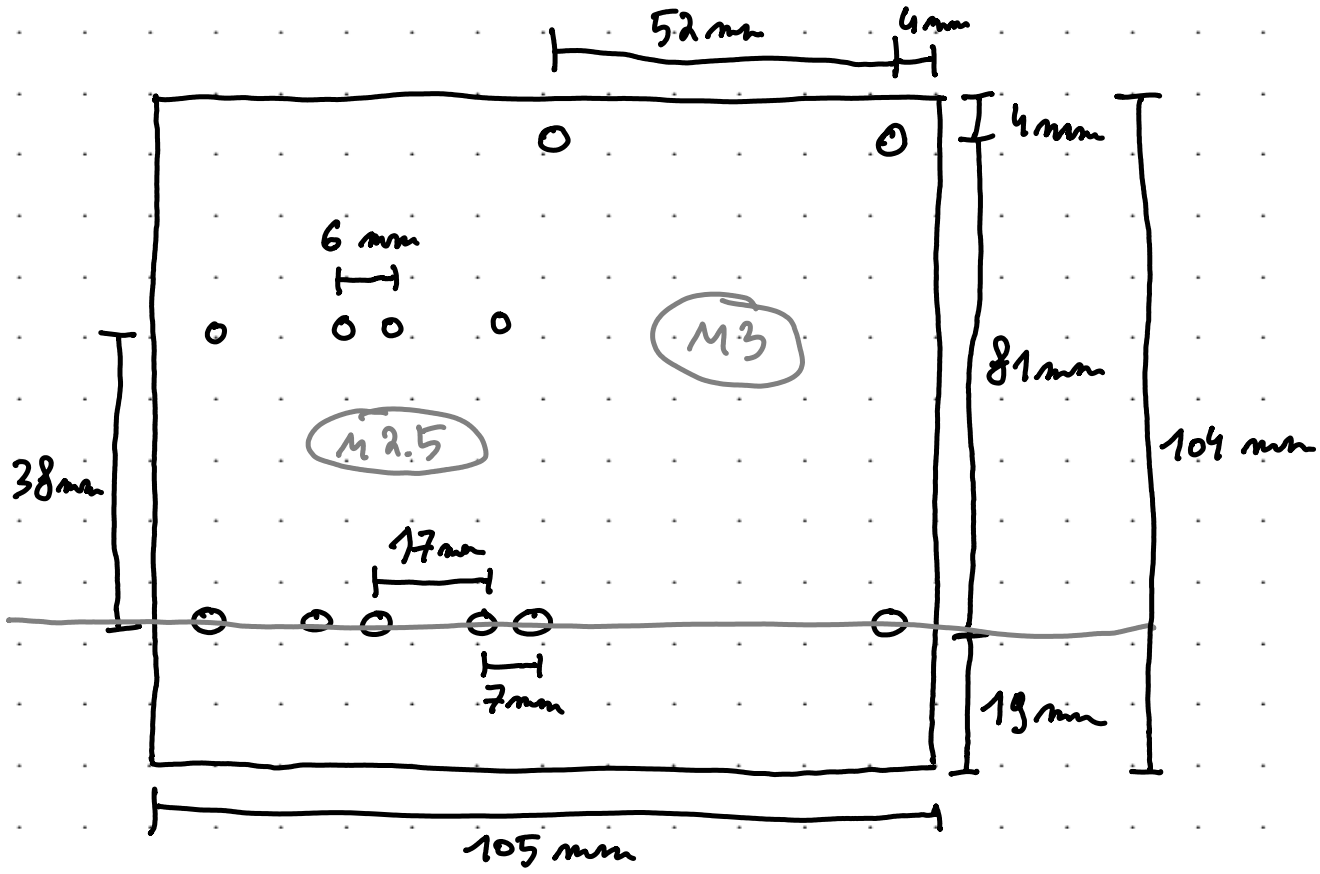 52 mm
4mm
4mm
6 mm
M3
81mm
M2.5
104 mm
38mm
17mm
7mm
19mm
105 mm